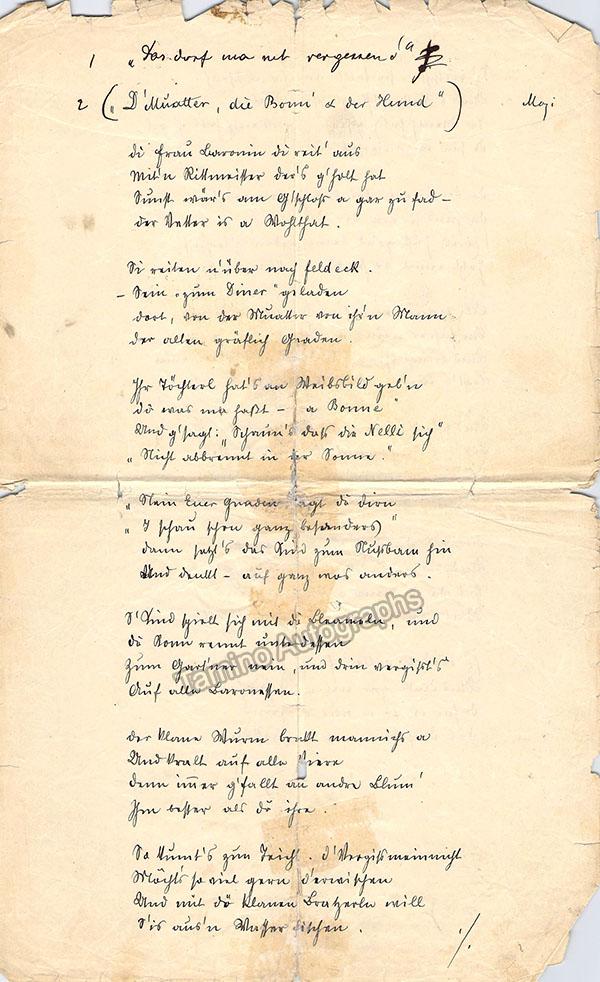 1 „Das dorf ma net vergessen d'a
2 („D'Muatter, die Bonn' & der Hund") Maj:
Di Frau Baronin di reit' aus
Mit'n Rittmeister der's g'holt hat
Sunst wär's am G'schloss a gar zu fad –
der Vetter is a Wohlthat.
Si reiten n'über nach Feldeck.
– Sein „zum Diner" geladen
dort, von der Muatter von ihr'n Mann
der alten gräflich Gnaden.
Ihr Töchterl hat's an Weibsbild geb'n
dö was ma haßt – a Bonne"
Und g'sagt: „Schaun's daß die Nelli sich"
„Nicht abbrennt in der Sonne."
„Nein Euer Gnaden sagt dö dion
„I schau schon ganz besonders"
dann setzt's das Kind zum Nußbam hin
Und denkt – auf ganz was anders.
S'Kind spielt sich mit di Bleameln, und
dö Bonn rennt unterdessen
Zum Gartner nein, und drin vergißt's
Auf alle Baronessen.
der klane Wurm brallt mannichs a
Und kralt auf alle Viere
denn immer g'fallt an andre Blum'
Ihm besser als dö ihre.
So kummt's zum Teicht. d'Vergissmeinnicht
Möcht's so viel gern d'erwischen
Und mit dö klanen Bratzerln will
S'is aus'n Wasser fischen.
./.
Tamino Autographs